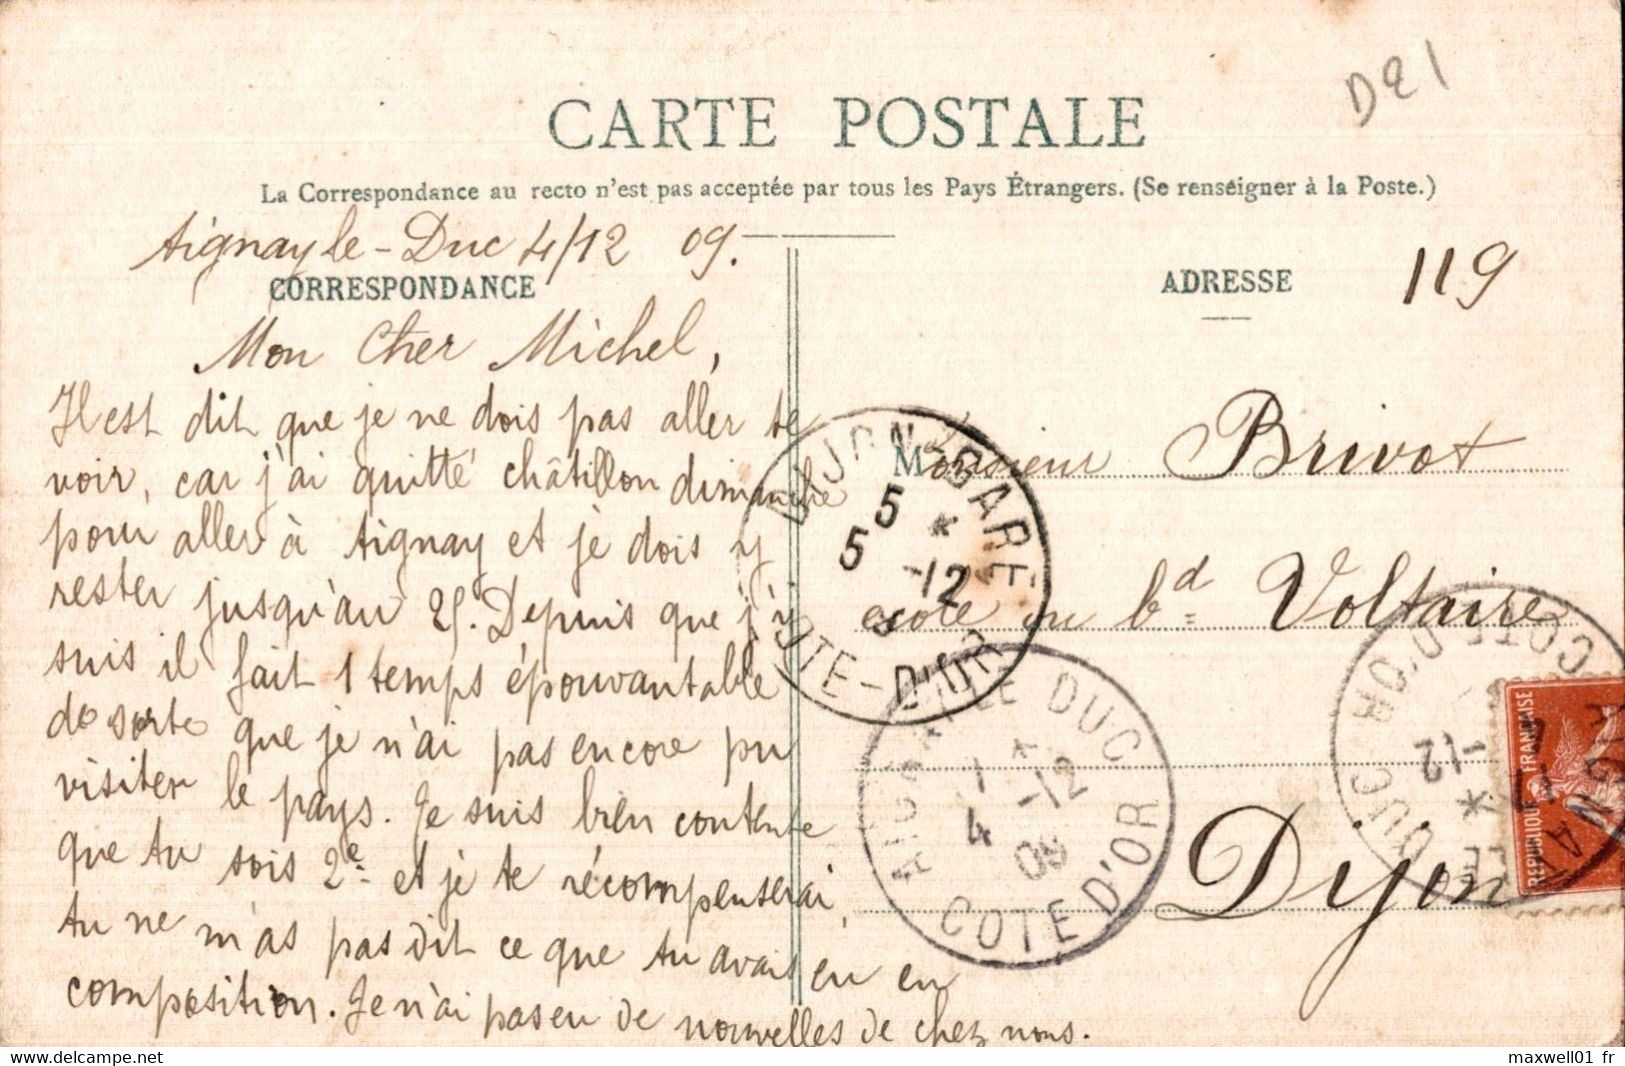 D21
CARTE POSTALE
La Correspondance au recto n'est pas acceptée par tous les Pays Étrangers. (Se renseigner à la Poste.)
Aignay le-Duc 4/12 09.
CORRESPONDANCE
Mon Cher Michel,
Il est dit que je ne dois pas aller te
voir, car j'ai quitté châtillon dimanche
pour aller à Aignay et je dois y
rester jusqu'au 25. Depuis que j'y
suis il fait 1 temps épouvantable
de sorte que je n'ai pas encore pu
visiter le pays. Je suis bien contente
que tu sois 2e et je te récompenserai,
tu ne m'as pas dit ce que tu avais eu en
composition. Je n'ai pas eu de nouvelles de chez nous.
ADRESSE
119
Monsieur Brivot
école du bd Voltaire
Dijon
DIJON GARE
5 *
5 -12
COTE-D'OR
AIGNAY LE DUC
1 *
4 -12
09
COTE D'OR
AIGNAY LE DUC
* -12
COTE D'OR
REPUBLIQUE FRANÇAISE
maxwell01 fr